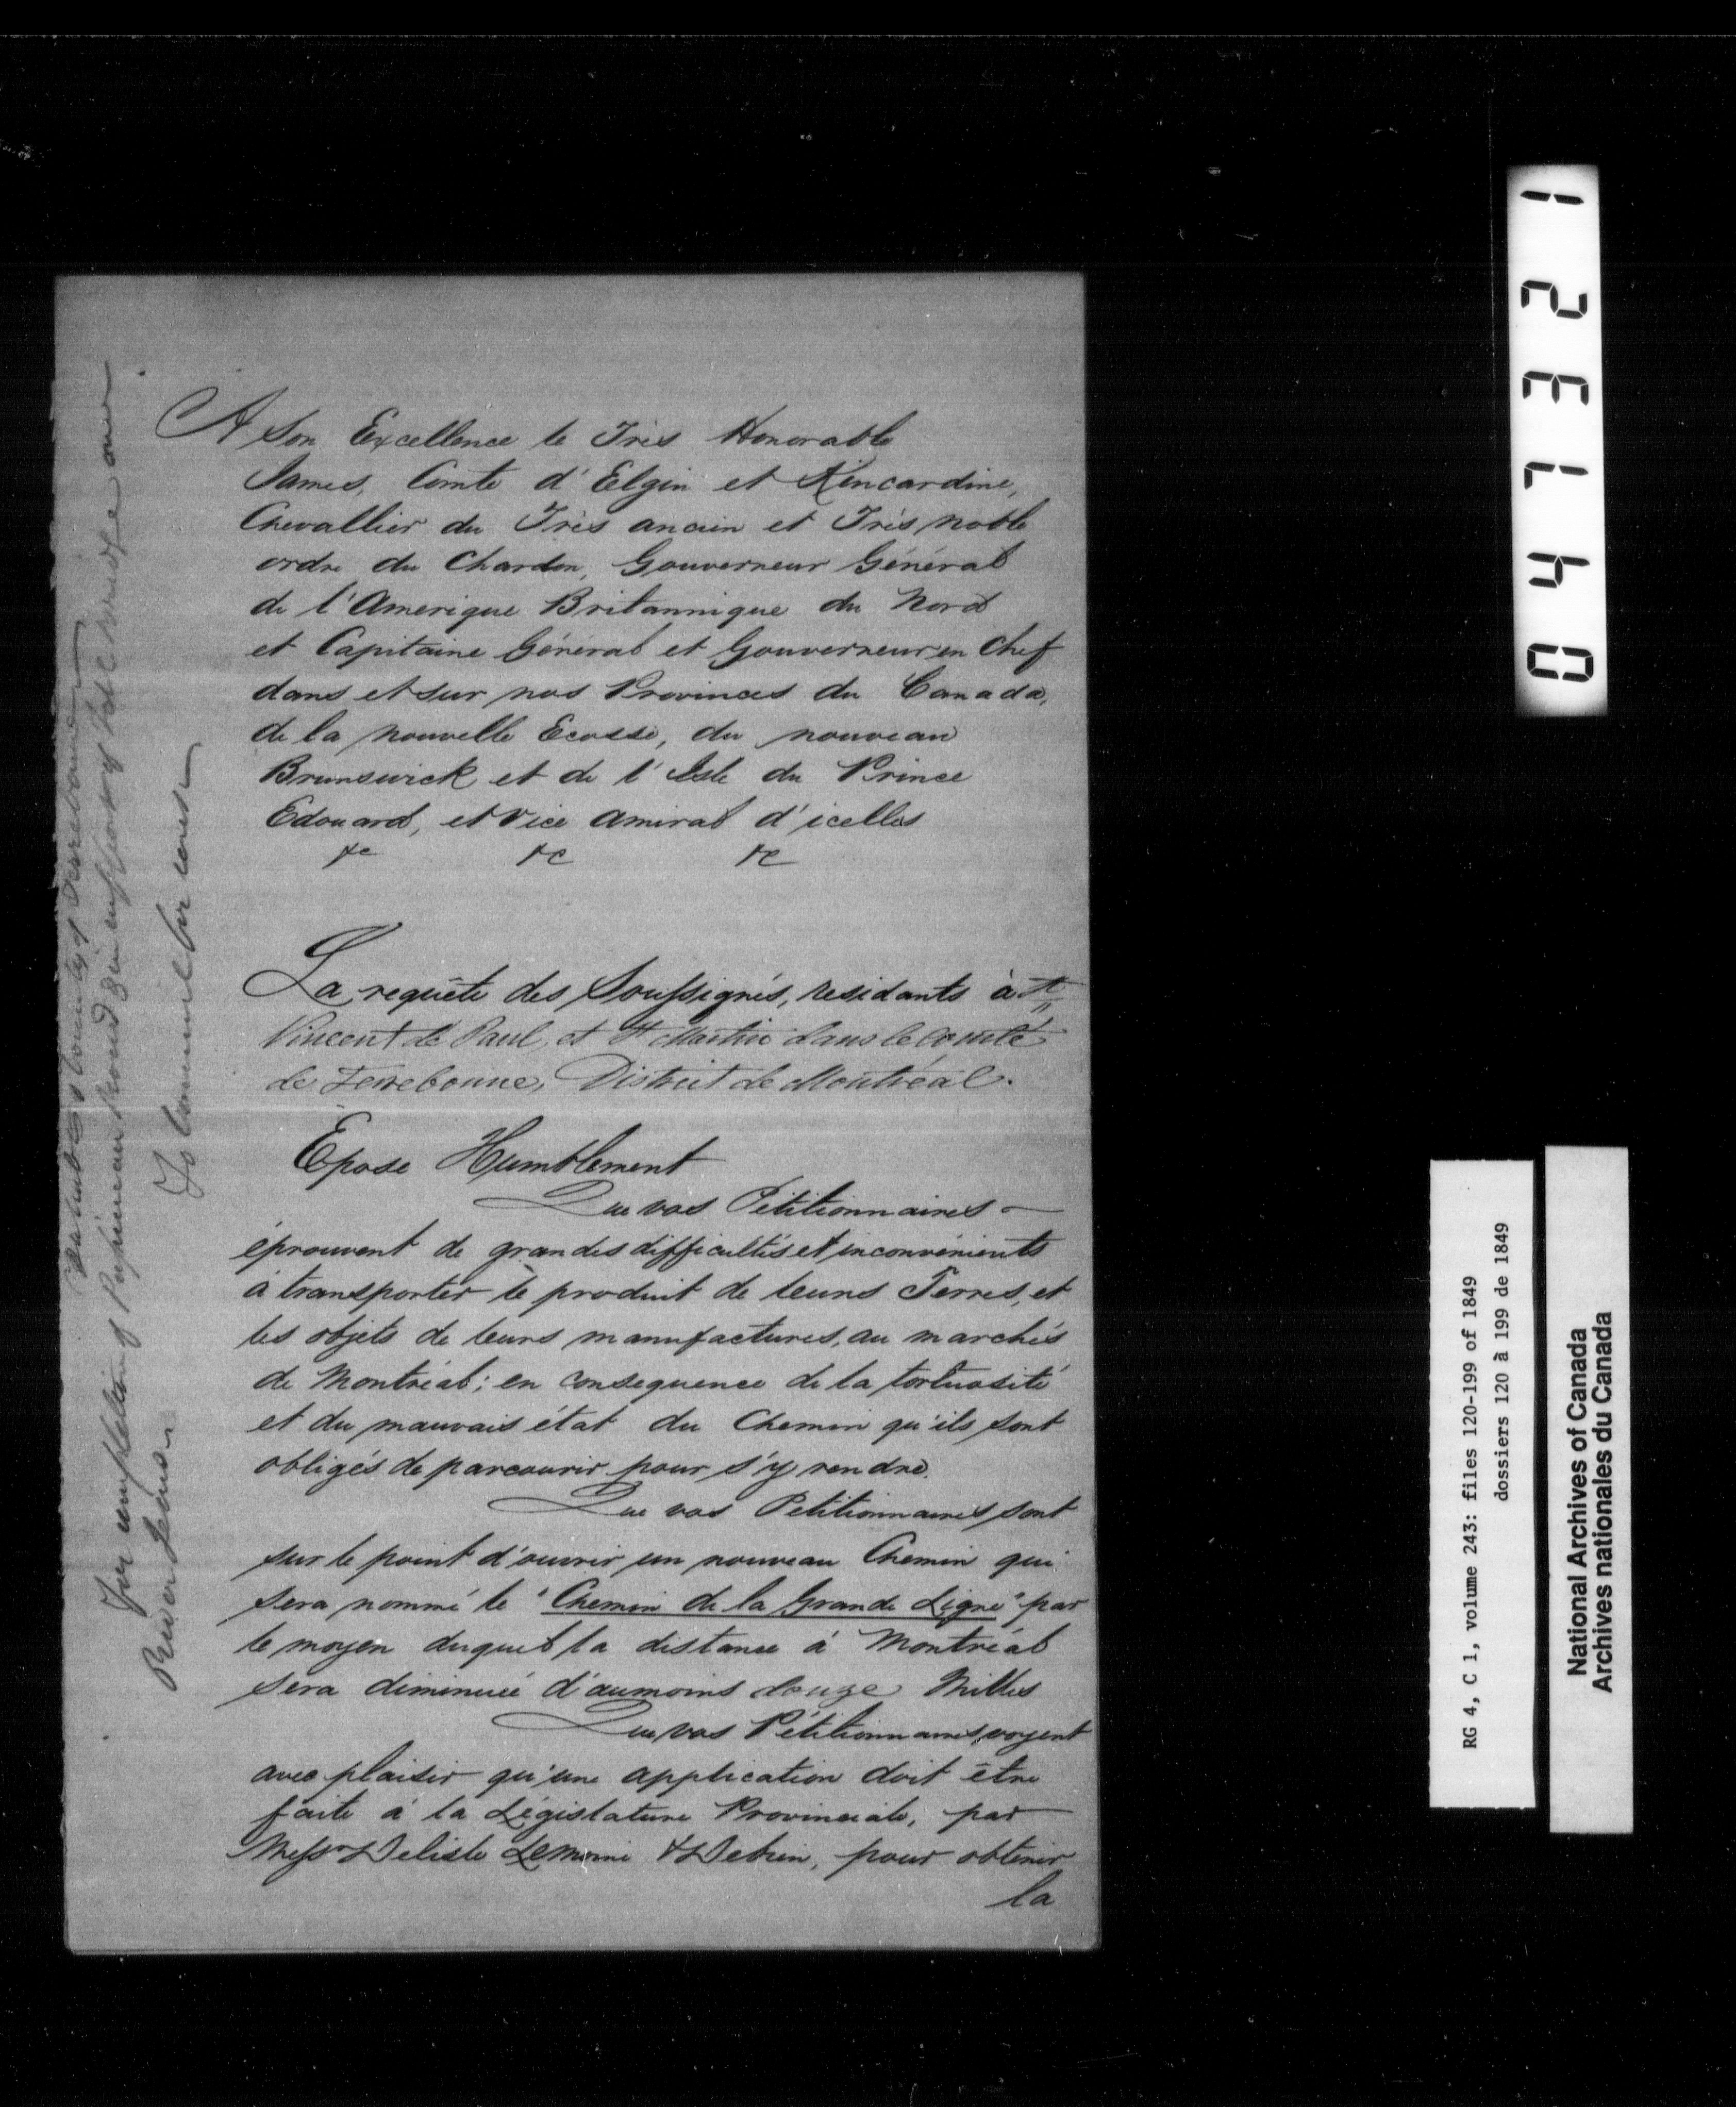 A Son Excellence le Très Honorable
James, Comte d'Elgin et Kincardine,
Chevallier du Très ancien et Très noble
ordre du Chardon, Gouverneur Général
de l'Amerique Britannique du Nord
et Capitaine Général et Gouverneur en Chef
dans et sur nos Provinces du Canada,
de la nouvelle Ecosse, du nouveau
Brunswick et de l'Isle du Prince
Edouard, et Vice amiral d'icelles
&c &c &c
La requête des Soussignés, residants à St
Vincent de Paul, et St Martin dans le Comté
de Terrebonne, District de Montréal.
Expose Humblement
Que vos Pétitionnaires
éprouvent de grandes difficultés et inconvénients
à transporter le produit de leurs Terres, et
les objets de leurs manufactures, au marchés
de Montréal; en consequence de la tortuosité
et du mauvais état du Chemin qu'ils sont
obligés de parcourir pour s'y rendre.
Que vos Petitionnaires sont
sur le point d'ouvrir un nouveau Chemin qui
sera nommé le "Chemin de la Grande Ligne" par
le moyen duquel la distance à Montréal
sera diminuée d'aumoins douze Milles
Que vos Pétitionnaires voyent
avec plaisir qu'une application doit être
faite à la Législature Provinciale, par
Messrs Delisle Lemoine & , pour obtenir
la
of Terrebonne
For completion of road &
River
To Commissioner
047321
RG 4, C 1, volume 243: files 120-199 of 1849
dossiers 120 à 199 de 1849
National Archives of Canada
Archives nationales du Canada